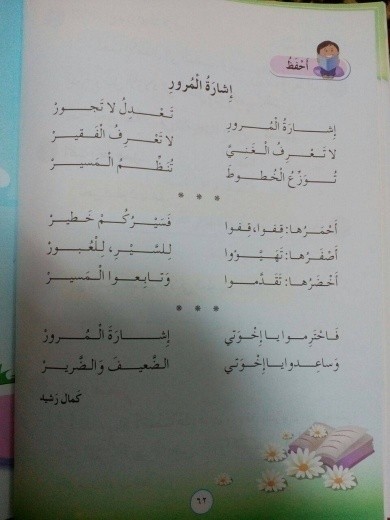 أَحْفَظُ
إِشارَةُ الْمُرورِ
إِشارَةُ الْمُرورِ تَعْدِلُ لا تَجورْ
لا تَعْرِفُ الْغَنِيَّ لا تَعْرِفُ الْفَقيرْ
تُوَزِّعُ الْخُطوطَ تُنَظِّمُ الْمَسيرْ
* * *
أَحْمَرُها: قِفوا، قِفوا فَسَيْرُكُمْ خَطيرْ
أَصْفَرُها: تَهَيَّؤوا لِلسَّيْرِ، لِلْعُبورْ
أَخْضَرُها: تَقَدَّموا وَتابِعوا الْمَسيرْ
* * *
فَاحْتَرِموا يا إِخْوَتي إِشارَةَ الْمُرورْ
وَساعِدوا يا إِخْوَتي الضَّعيفَ وَالضَّريرْ
كَمال رَشيد
٦٢